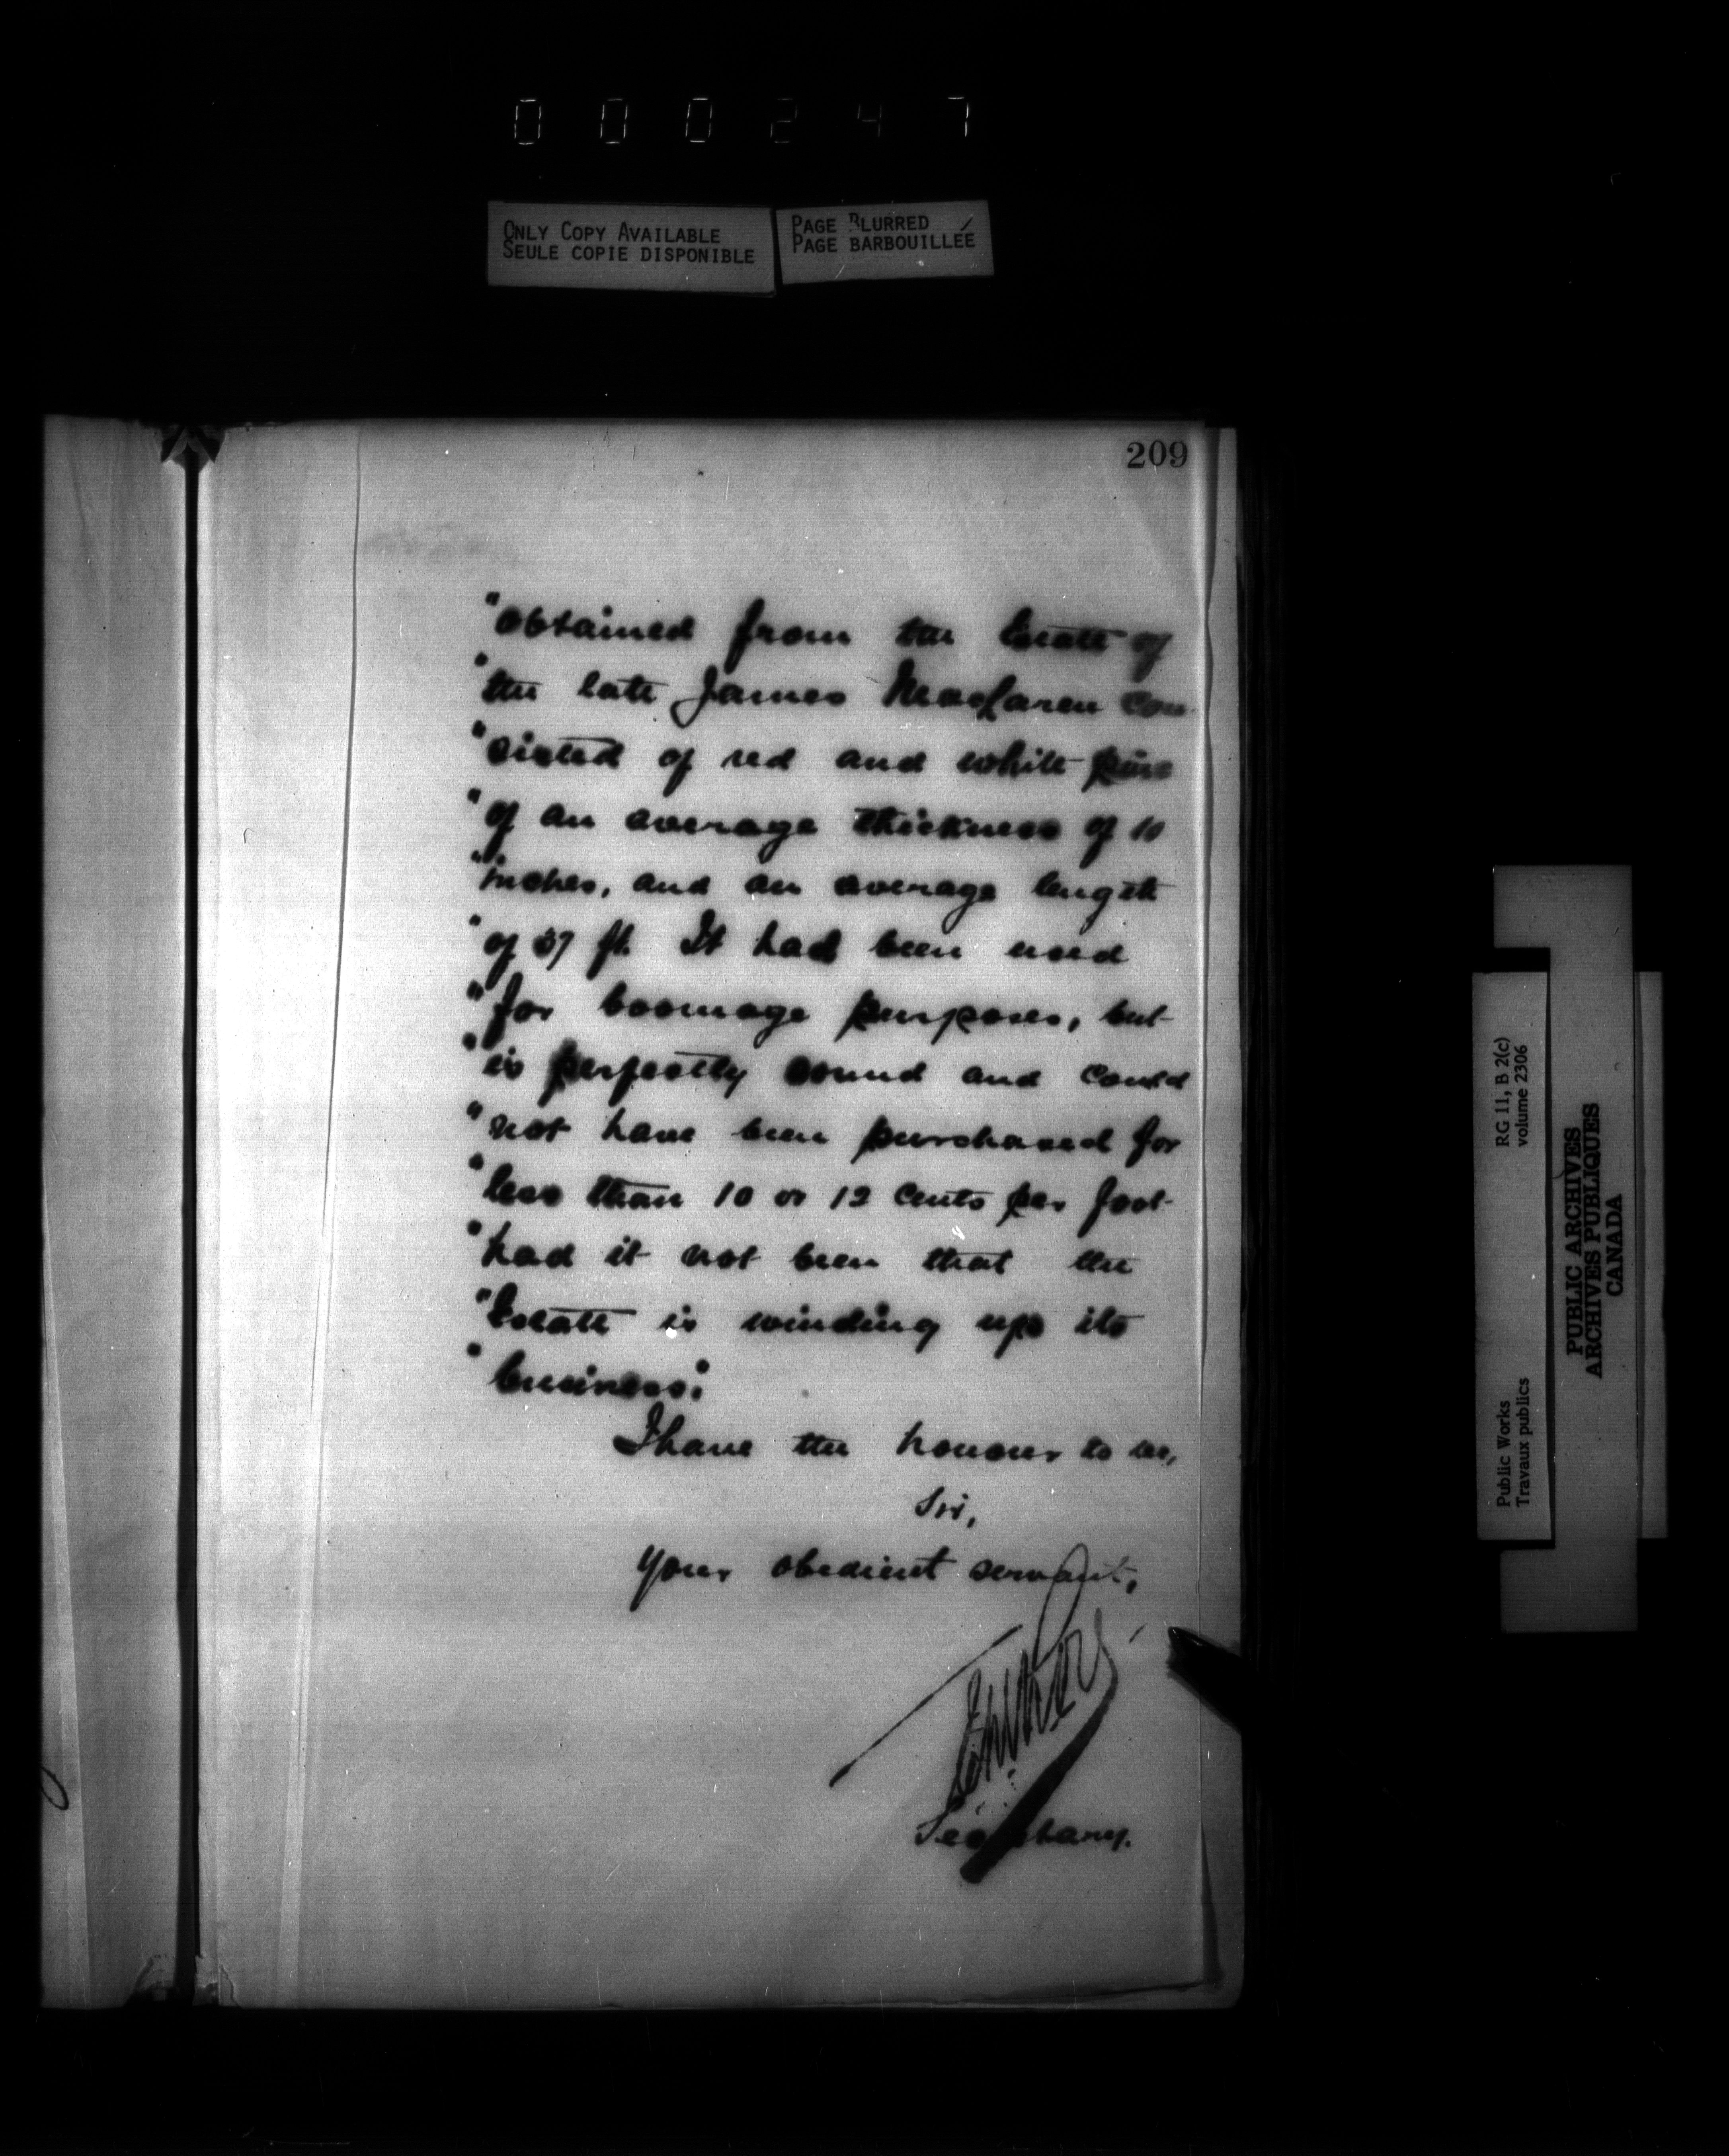 000247
ONLY COPY AVAILABLE
SEULE COPIE DISPONIBLE
PAGE BLURRED
PAGE BARBOUILLÉE
209
"obtained from the Estate of
"the late James MacLaren con-
"sisted of red and white pine
"of an average thickness of 10
"inches, and an average length
"of 37 ft. It had been used
"for boomage purposes, but
"is perfectly sound and could
"not have been purchased for
"less than 10 or 12 cents per foot
"had it not been that the
"Estate is winding up its
"business."
I have the honour to be,
Sir,
Your obedient servant,
Secretary.
Public Works
Travaux publics
RG 11, B 2(c)
volume 2306
PUBLIC ARCHIVES
ARCHIVES PUBLIQUES
CANADA